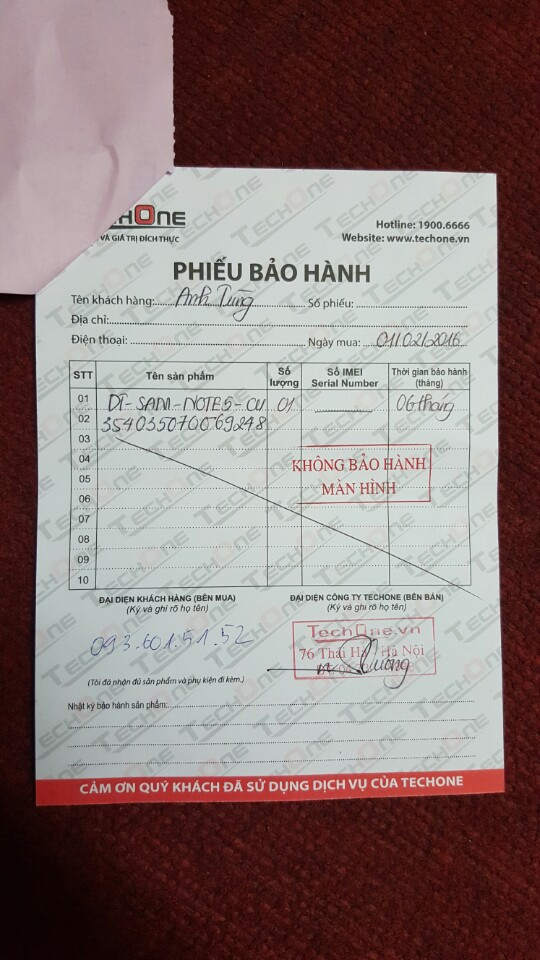 TECHONE
VÀ GIÁ TRỊ ĐÍCH THỰC
Hotline: 1900.6666
Website: www.techone.vn
PHIẾU BẢO HÀNH
Tên khách hàng: Anh Tùng Số phiếu:
Địa chỉ:
Điện thoại: Ngày mua: 01/02/2016
STT Tên sản phẩm Số lượng Số IMEI Serial Number Thời gian bảo hành (tháng)
01 DT-SAM-NOTE5-CU 01 06 tháng
02 354035070069248
03
04
05
06
07
08
09
10
KHÔNG BẢO HÀNH
MÀN HÌNH
ĐẠI DIỆN KHÁCH HÀNG (BÊN MUA) ĐẠI DIỆN CÔNG TY TECHONE (BÊN BÁN)
(Ký và ghi rõ họ tên) (Ký và ghi rõ họ tên)
093.601.51.52
TechOne.vn
76 Thái Hà Hà Nội
(Tôi đã nhận đủ sản phẩm và phụ kiện đi kèm.)
Nhật ký bảo hành sản phẩm:
CẢM ƠN QUÝ KHÁCH ĐÃ SỬ DỤNG DỊCH VỤ CỦA TECHONE